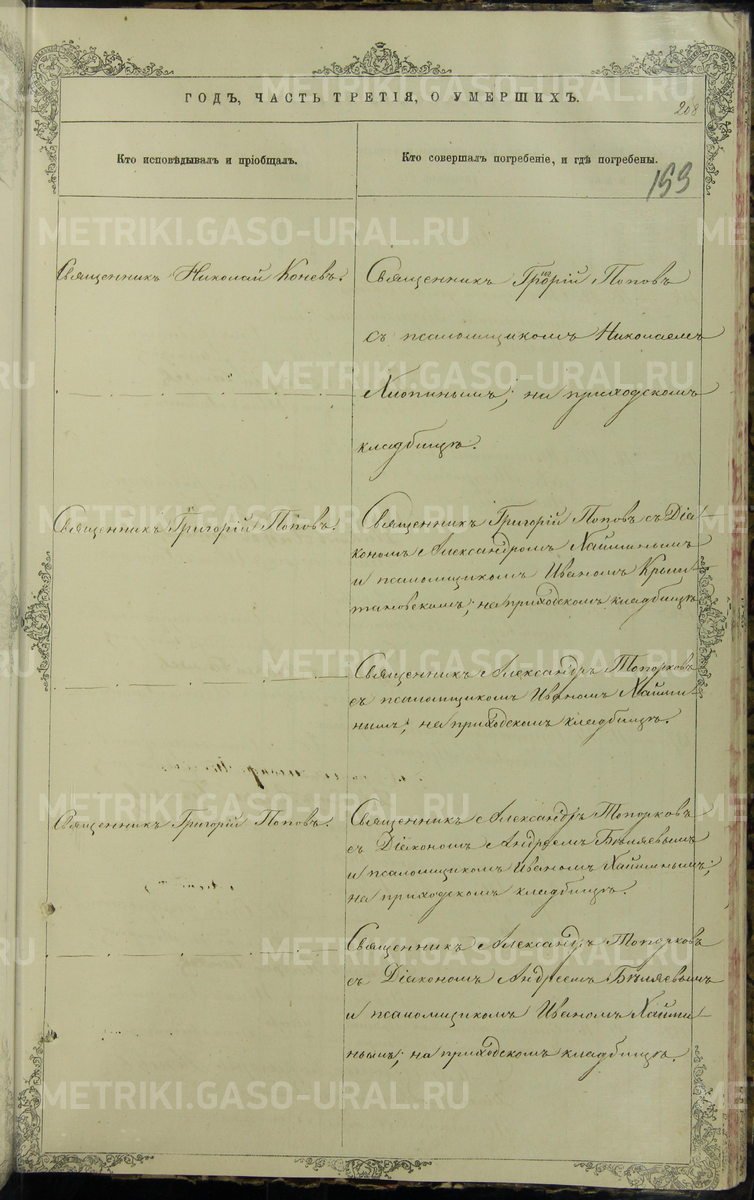 ГОДЪ, ЧАСТЬ ТРЕТІЯ, О УМЕРШИХЪ.
208
Кто исповѣдывалъ и пріобщалъ.
Кто совершалъ погребеніе, и гдѣ погребены.
METRIKI.GASO-URAL.RU
Священникъ Николай Коневъ.
Священникъ Григорій Поповъ
съ псаломщикомъ Николаемъ
Хлопинымъ; на приходскомъ
кладбищѣ.
Священникъ Григорій Поповъ.
Священникъ Григорій Поповъ съ Діа
кономъ Александромъ Хайминымъ
и псаломщикомъ Иваномъ
тановскимъ; на приходскомъ кладбищѣ
Священникъ Александръ Топорковъ
съ псаломщикомъ Иваномъ Хайми
нымъ; на приходскомъ кладбищѣ.
Священникъ Григорій Поповъ.
Священникъ Александръ Топорковъ
съ Діакономъ Андреемъ Бѣляевымъ
и псаломщикомъ Иваномъ Хайминымъ;
на приходскомъ кладбищѣ.
Священникъ Александръ Топорковъ
съ Діакономъ Андреемъ Бѣляевымъ
и псаломщикомъ Иваномъ Хайми
нымъ; на приходскомъ кладбищѣ.